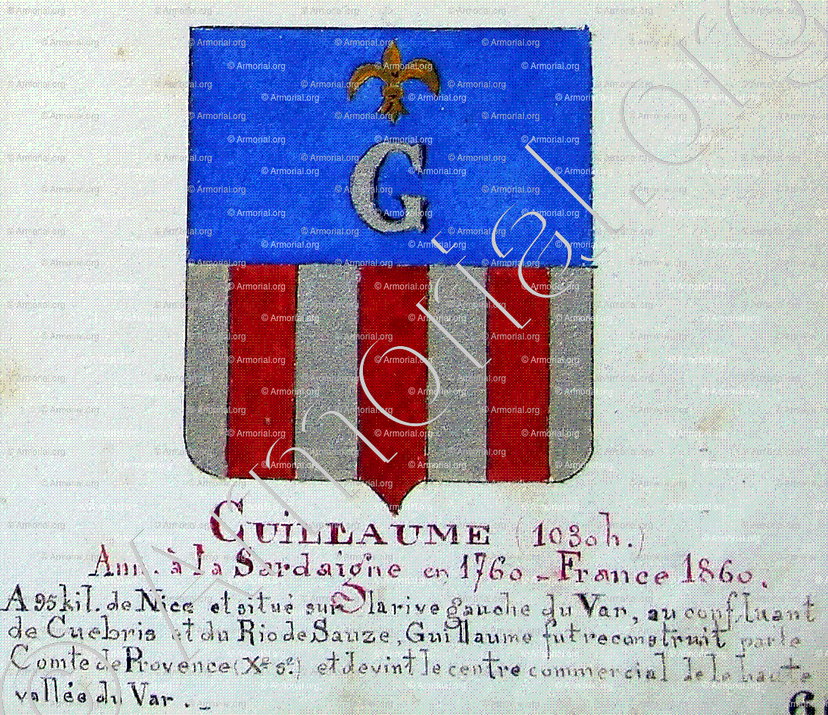 G
GUILLAUME (1030h.)
Ann. à la Sardaigne en 1760 - France 1860.
A 95 kil. de Nice et situé sur la rive gauche du Var, au confluant
de Cuebris et du Rio de Sauze, Guillaume fut reconstruit par le
Comte de Provence (Xe. s°.) et devint le centre commercial de la haute
vallée du Var. _
© Armorial.org